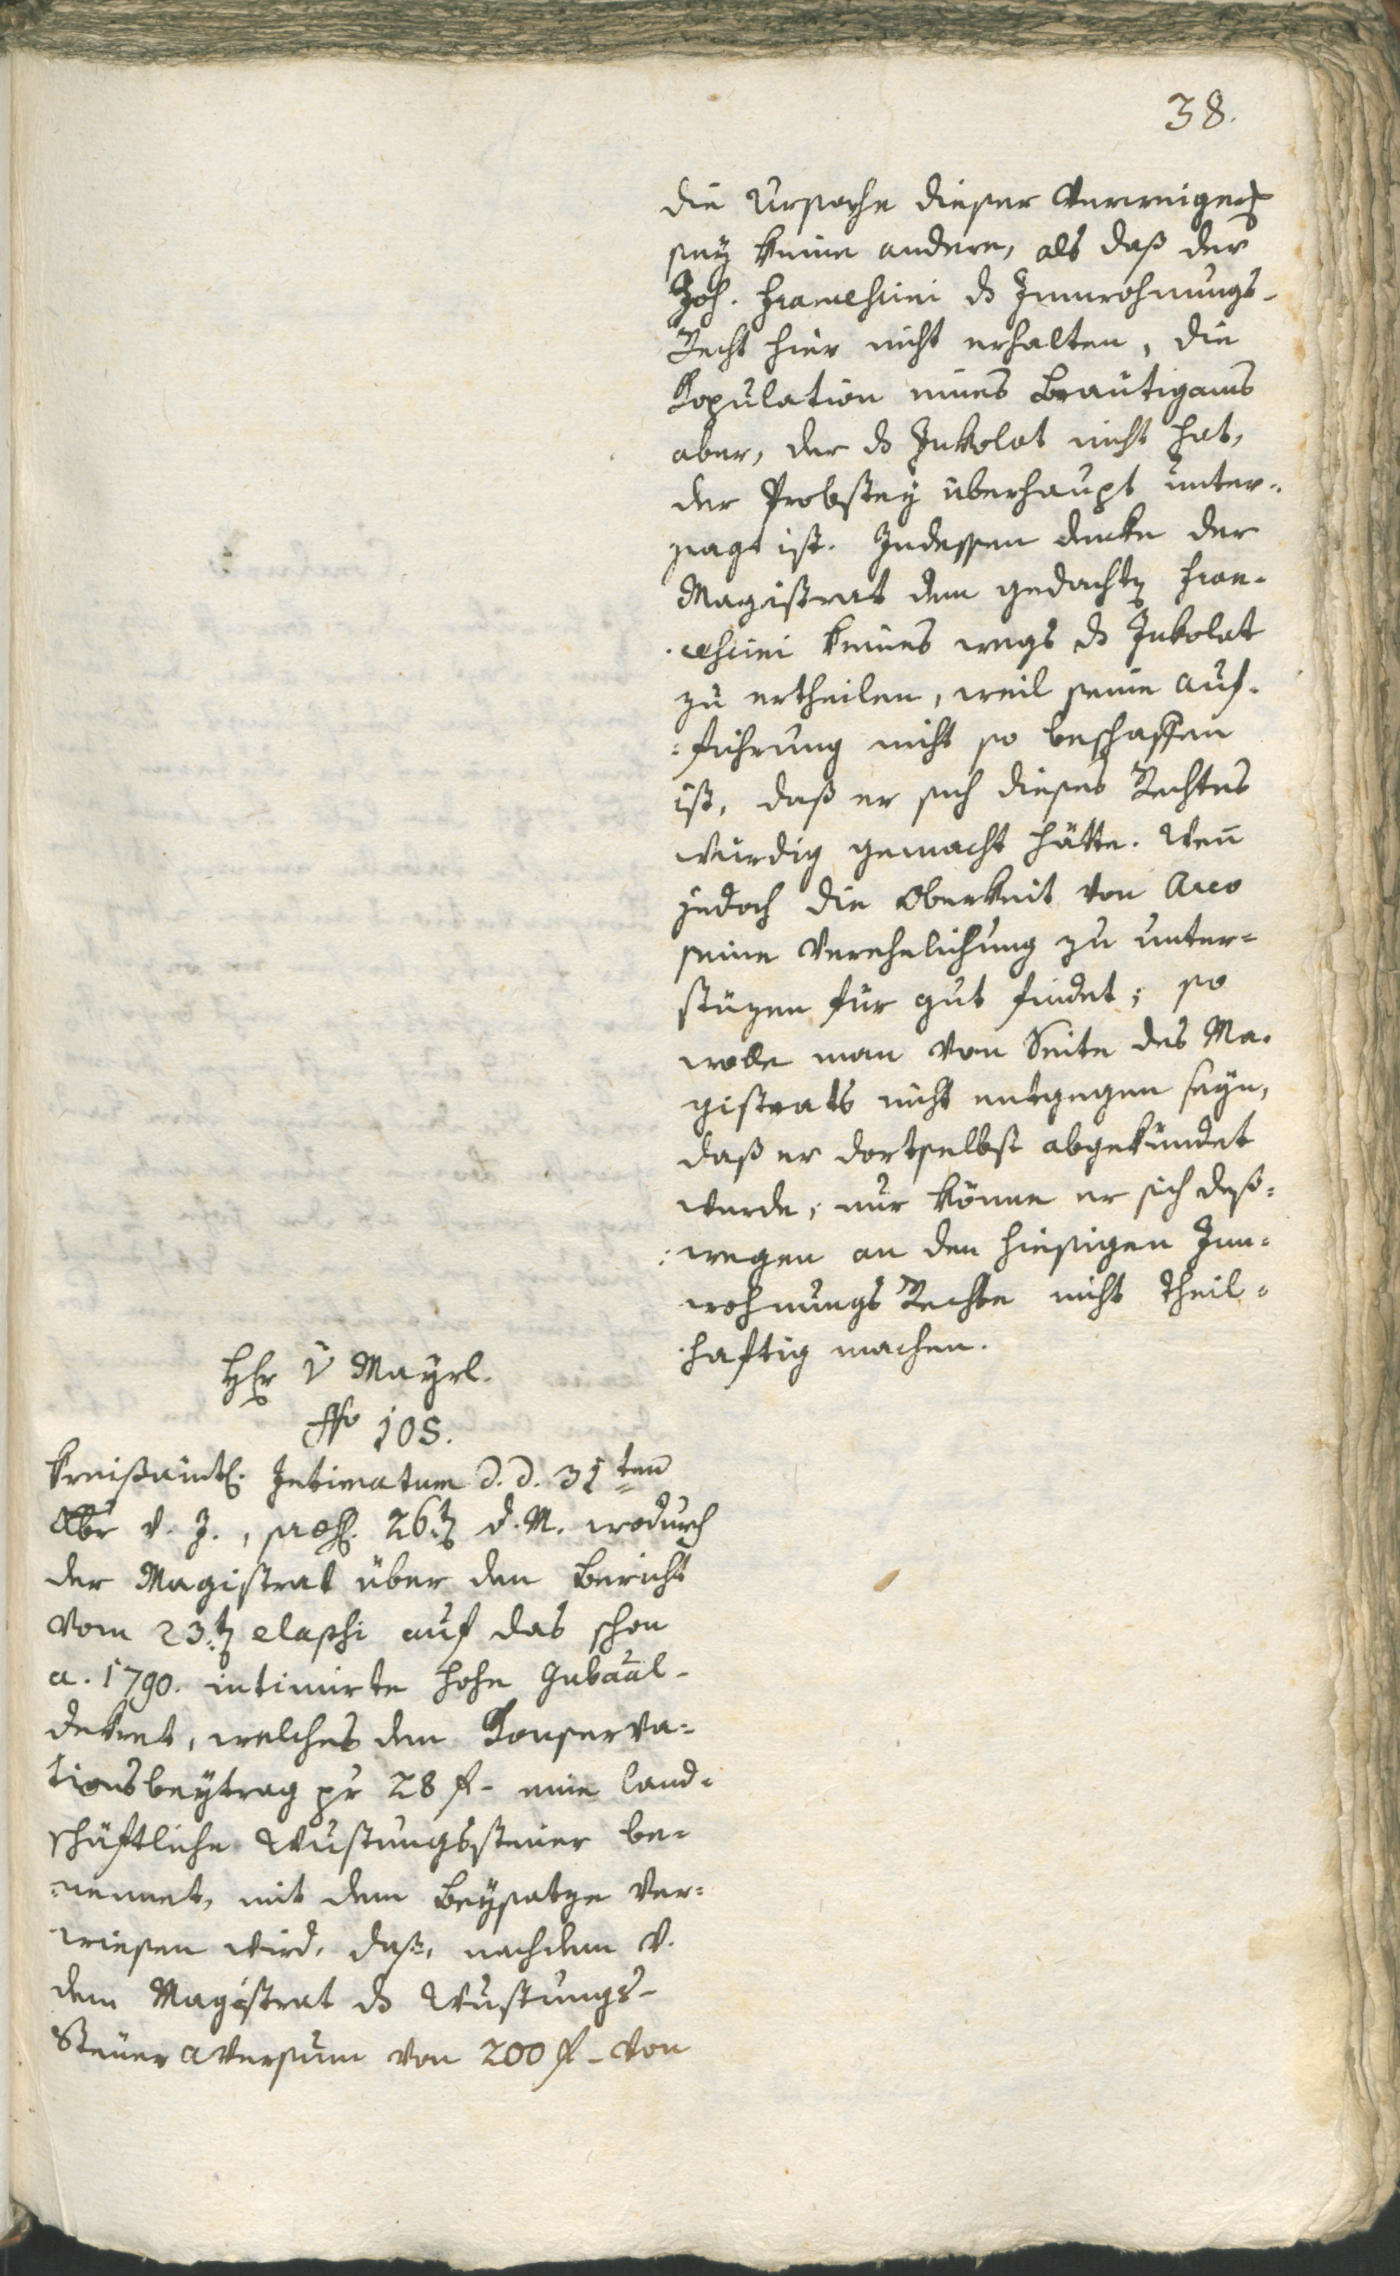 38.
die Ursache dieser Verweiger[un]g
sey keine andere, als daß der
Joh. Franceschini ds Innwohnungs-
Recht hier nicht erhalten, die
Kopulation eines Bräutigams
aber, der ds Inkolat nicht hat,
der Probstey überhaupt unter-
sagt ist. Indessen denke der
Magistrat dem gedachten Fran-
ceschini keines wegs ds Inkolat
zu ertheilen, weil seine Auf-
führung nicht so beschaffen
ist, daß er sich dieses Rechtes
würdig gemacht hätte. Wenn
jedoch die Oberkeit von Arco
seine Verehelichung zu unter=
stüzen für gut findet; so
wolle man von Seite des Ma-
gistrats nicht entgegen seyn,
daß er dortselbst abgekündet
werde, nur könne er sich deß=
wegen an den hiesigen Inn=
wohnungs Rechte nicht theil=
haftig machen.
Hr v Mayrl.
No 105.
Kreisämtl. Intimatum d. d. 31ten
Xbr v. J., praes. 26.ten d. M. wodurch
der Magistrat über den Bericht
vom 23.ten elapsi auf das schon
a. 1790. intimirte hohe Gubaal-
dekret, welches den Konserva=
tionsbeytrag pr 28 f- eine land=
schäftliche Wustungssteuer be=
nennet, mit dem Beysatze ver=
wiesen wird, daß, nachdem v.
dem Magistrat ds Wustungs-
Steuer aversum von 200 f- von